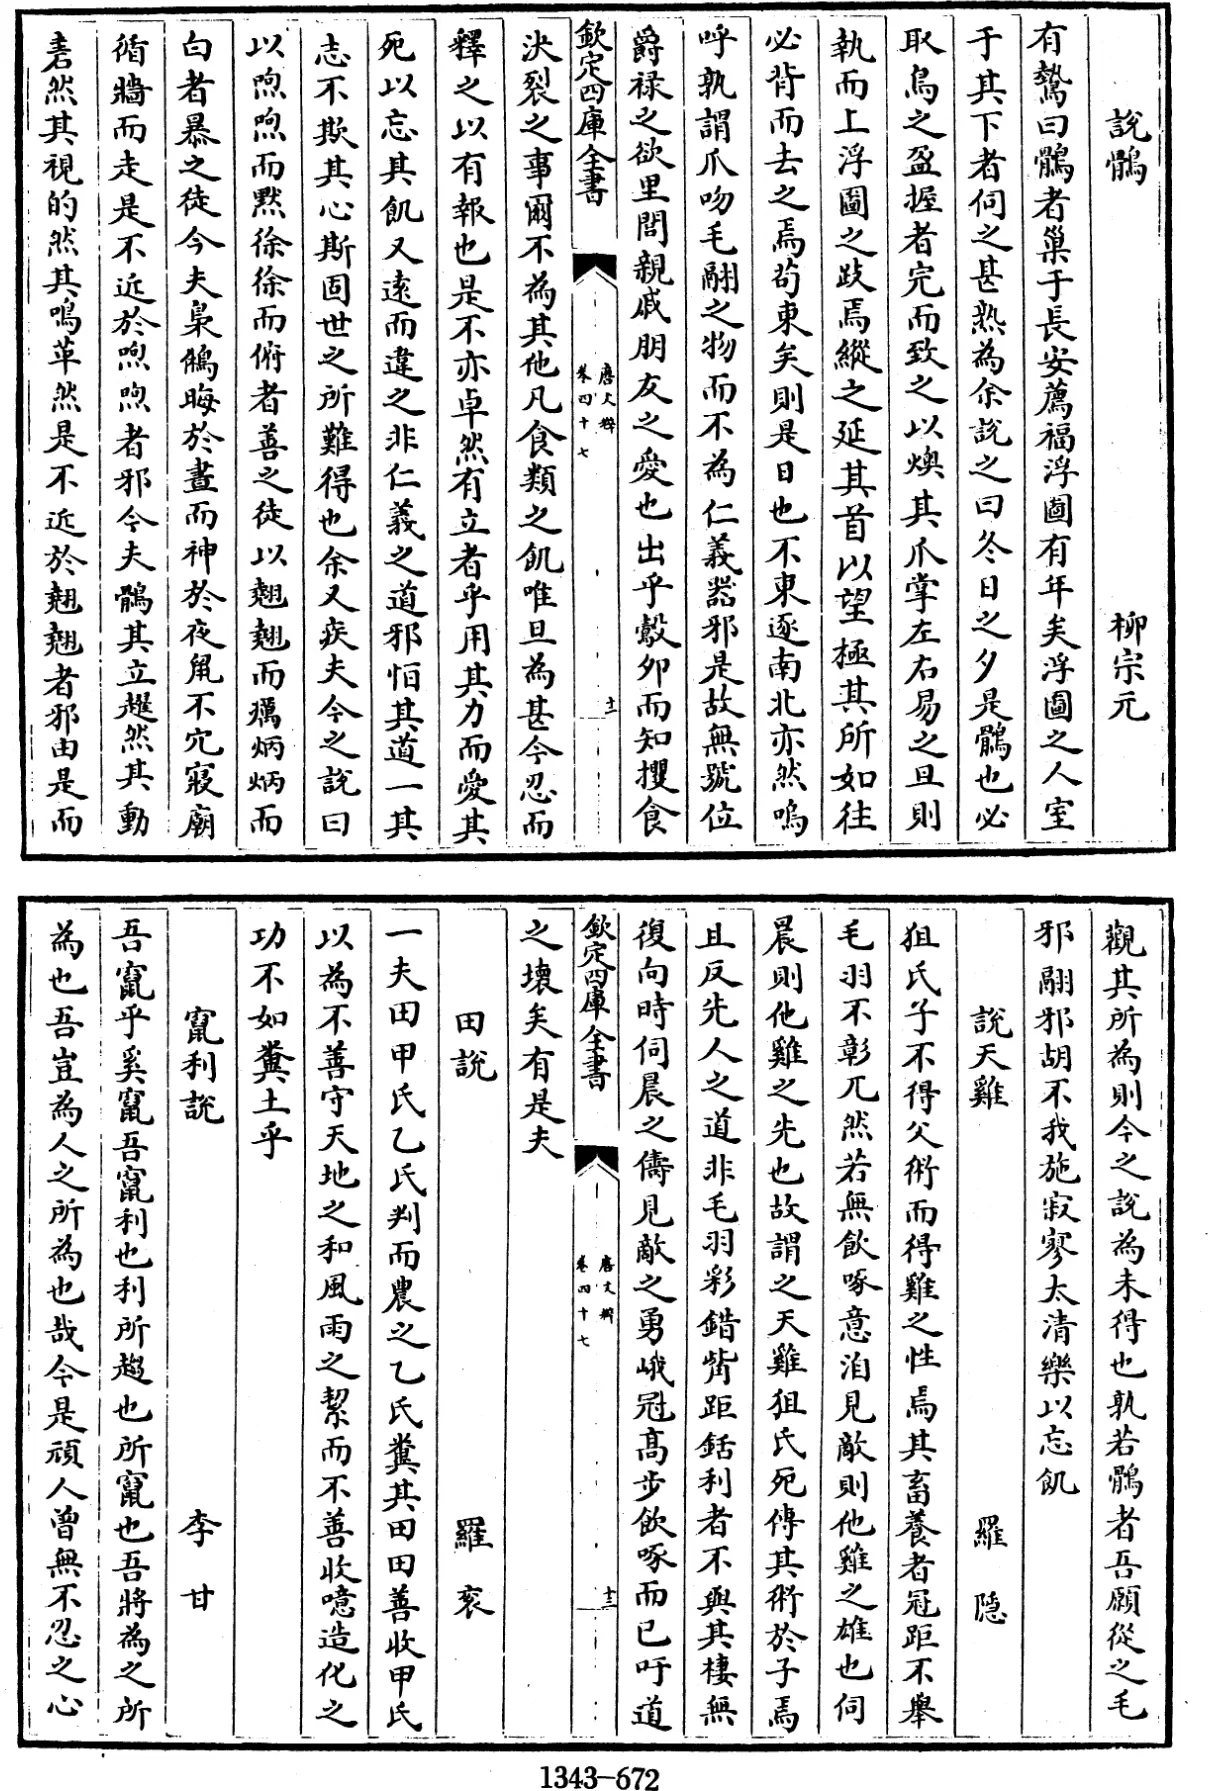 說鶻 柳宗元
有鷙曰鶻者巢于長安薦福浮圖有年矣浮圖之人室
于其下者伺之甚熟為余說之曰冬日之夕是鶻也必
取鳥之盈握者完而致之以燠其爪掌左右易之旦則
執而上浮圖之跂焉縱之延其首以望極其所如往
必背而去之焉苟東矣則是日也不東逐南北亦然嗚
呼孰謂爪吻毛翮之物而不為仁義器邪是故無號位
爵祿之欲里閭親戚朋友之愛也出乎鷇卵而知攫食
欽定四庫全書 唐文粹 卷四十七 十二
決裂之事爾不為其他凡食類之飢唯旦為甚今忍而
釋之以有報也是不亦卓然有立者乎用其力而愛其
死以忘其飢又遠而違之非仁義之道邪恒其道一其
志不欺其心斯固世之所難得也余又疾夫今之說曰
以喣喣而黙徐徐而俯者善之徒以翹翹而癘炳炳而
白者暴之徒今夫梟鵂晦於晝而神於夜鼠不穴寢廟
循牆而走是不近於喣喣者邪今夫鶻其立趯然其動
砉然其視的然其鳴革然是不近於翹翹者邪由是而
觀其所為則今之說為未得也孰若鶻者吾願從之毛
邪翮邪胡不我施寂寥太清樂以忘飢
說天雞 羅隱
狙氏子不得父術而得雞之性焉其畜養者冠距不舉
毛羽不彰兀然若無飲啄意洎見敵則他雞之雄也伺
晨則他雞之先也故謂之天雞狙氏死傳其術於子焉
且反先人之道非毛羽彩錯觜距銛利者不與其棲無
復向時伺晨之儔見敵之勇峨冠高步飲啄而已吁道
欽定四庫全書 唐文粹 卷四十七 十三
之壞矣有是夫
田說 羅衮
一夫田甲氏乙氏判而農之乙氏糞其田田善收甲氏
以為不善守天地之和風雨之絜而不善收噫造化之
功不如糞土乎
竄利說 李甘
吾竄乎奚竄吾竄利也利所趨也所竄也吾將為之所
為也吾豈為人之所為也哉今是頑人曾無不忍之心
1343-672